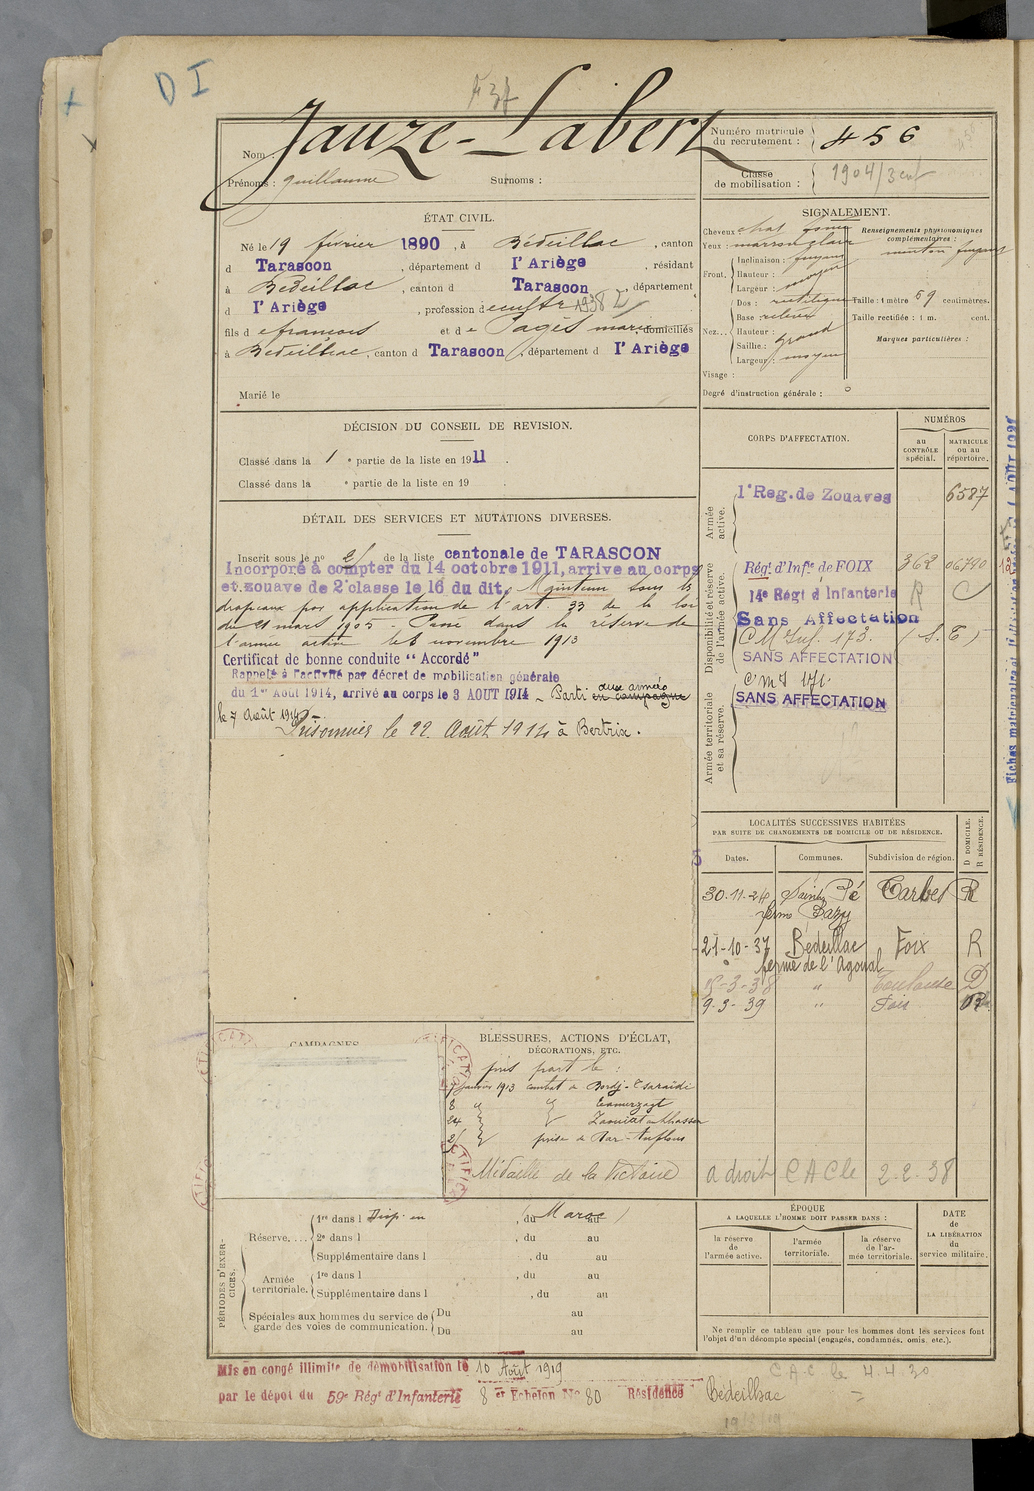 D I
Jauze-Labert
Nom :
Prénoms : Guillaume Surnoms :
Numéro matricule du recrutement : 456
Classe de mobilisation : 1904/3
ÉTAT CIVIL.
Né le 19 février 1890, à Bédeillac, canton
d Tarascon, département d l'Ariège, résidant
à Bédeillac, canton d Tarascon, département
d l'Ariège, profession d
fils d e françois et d e Pagès marie domiciliés
à Bédeilhac, canton d Tarascon, département d l'Ariège
Marié le
SIGNALEMENT.
Cheveux chat
Yeux : marron clair
Renseignements physionomiques complémentaires :
menton fuyant
Front. Inclinaison : fuyant
Hauteur : moyen
Largeur : moyen
Nez... Dos : rectiligne
Base : relevée
Hauteur :
Saillie : grand
Largeur : moyen
Taille : 1 mètre 69 centimètres.
Taille rectifiée : 1 m. cent.
Marques particulières :
Visage :
Degré d'instruction générale :
DÉCISION DU CONSEIL DE REVISION.
Classé dans la 1 e partie de la liste en 1911.
Classé dans la e partie de la liste en 19 .
DÉTAIL DES SERVICES ET MUTATIONS DIVERSES.
Inscrit sous le nº de la liste cantonale de TARASCON
Incorporé à compter du 14 octobre 1911, arrive au corps
et zouave de 2e classe le 16 du dit. Maintenu sous les
drapeaux par application de l'art 33 de la loi
du 21 mars 1905 - Passé dans la réserve de
l'armée active le 8 novembre 1913
Certificat de bonne conduite "Accordé"
Rappelé à l'activité par décret de mobilisation générale
du 1er Août 1914, arrivé au corps le 3 AOUT 1914 - Parti en campagne aux armées
le 7 Août 1914.
Prisonnier le 22 Août 1914 à Bertrix.
CORPS D'AFFECTATION.
NUMÉROS
au CONTRÔLE spécial.
MATRICULE ou au répertoire.
Armée active.
1e Reg. de Zouaves 6587
Disponibilité et réserve de l'armée active.
Régt d'Infie de FOIX 362 06740
14e Régt d'Infanterie
Sans Affectation
C M Inf. 173.
SANS AFFECTATION
Armée territoriale et sa réserve.
C M I 171.
SANS AFFECTATION
LOCALITÉS SUCCESSIVES HABITÉES
PAR SUITE DE CHANGEMENTS DE DOMICILE OU DE RÉSIDENCE.
Dates. Communes. Subdivision de région. D DOMICILE. R RÉSIDENCE.
30.11.24 Saint Pé Tarbes R
ferme Bazy
21-10-37 Bédeillac Foix R
ferme de l'Agoual
-3-38 " Toulouse D
9-3-39 " Foix
a droit CACle 2.2.38
CAMPAGNES
BLESSURES, ACTIONS D'ÉCLAT,
DÉCORATIONS, ETC.
pris part le :
7 janvier 1913 combat de Bordj-
8 " "
24 " "
prise de Dar-
Médaille de la Victoire
PÉRIODES D'EXERCICES.
Réserve.... 1re dans l Disp. en , du Maroc au
2e dans l , du au
Supplémentaire dans l , du au
Armée territoriale. 1re dans l , du au
Supplémentaire dans l , du au
Spéciales aux hommes du service de garde des voies de communication. Du au
Du au
ÉPOQUE
A LAQUELLE L'HOMME DOIT PASSER DANS :
la réserve de l'armée active.
l'armée territoriale.
la réserve de l'armée territoriale.
DATE de LA LIBÉRATION du service militaire.
Ne remplir ce tableau que pour les hommes dont les services font
l'objet d'un décompte spécial (engagés, condamnés, omis, etc.).
Mis en congé illimité de démobilisation le 10 Août 1919
par le dépot du 59e Régt d'Infanterie 8 er Echelon Nº 80 Résidence Bédeilhac
C.A.C le 4.4.30